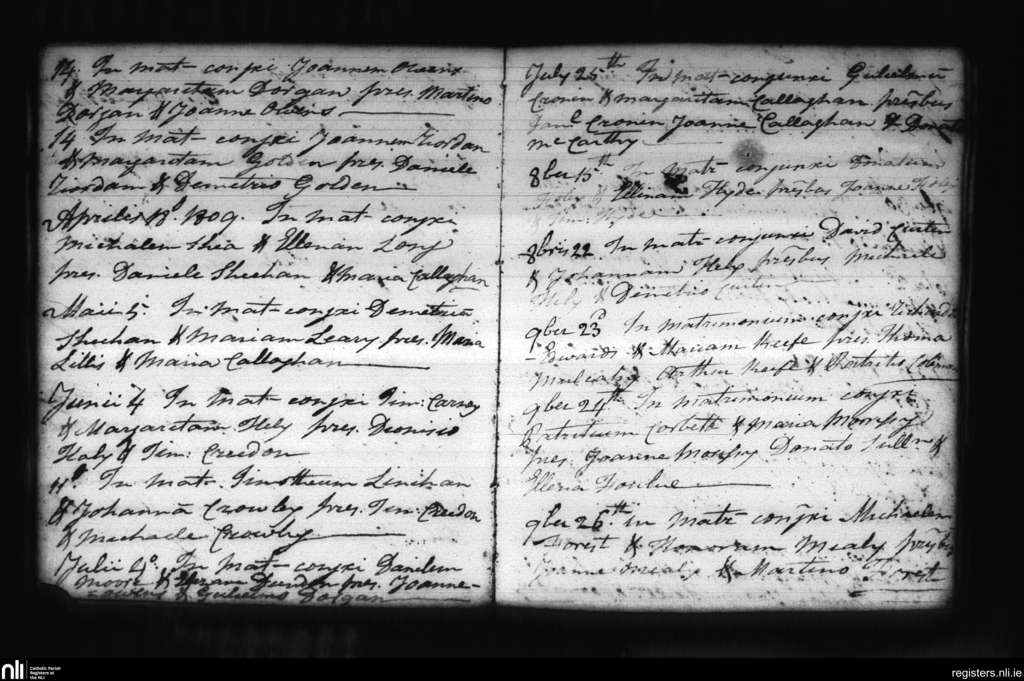 14. In mat- conjxi Joannem Owens
& Margaritam Dorgan pres. Martino
Dorgan & Joanne Owens
14 In mat- conjxi Joannem Riordan
& Margaritam Golden pres. Daniele
Riordan & Demetrio Golden
Aprilis 18º 1809. In mat- conjxi
Michalem Shea & Ellenan Long
pres. Daniele Sheehan & Maria Callaghan
Maii 5. In mat- conjxi Demetriu
Sheehan & Mariam Leary pres. Maria
Lillis & Maria Callaghan
Junii 4 In mat- conjxi Tim: Carvey
& Margaritam Hely pres. Dionisio
Haly & Tim: Creedon
In mat- Timotheum Linihan
& Johanna Crowley pres. Tim: Creedon
& Michaele Crowley
Julii In mat- conjxi Danilem
Moore & pres. Joanne
Owens & Gulielmo Dorgan
July 25th In mat- conjunxi Gulielmu
Cronin & Margaritam Callaghan presbus
Danl Cronin Joanne Callaghan &
McCarthy
8ber 15th In matr conjunxi Donatum
& Ellenam Hyde presbus Joanne
& Hyde
8bris 22. In matr- conjunxi David Curten
& Johannam Hely presbus Michaele
Hely & Demetrio Curten
9ber 23d In matrimonium conjxi Richard
Edwards & Mariam Keefe pres. Thoma
Mulcahy Arthur Keefe & Patritio
9ber 24th In matrimonium conjxi
Patritium Corbett & Maria Monsy
pres. Joanne Monsy Donato Sulln &
Ellena
9ber 26th in matr- conjxi Michaelem
Forest & Honoram Mealy presbus
Joanne Mealy & Martino Forest
nli
Catholic Parish
Registers at
the NLI
registers.nli.ie